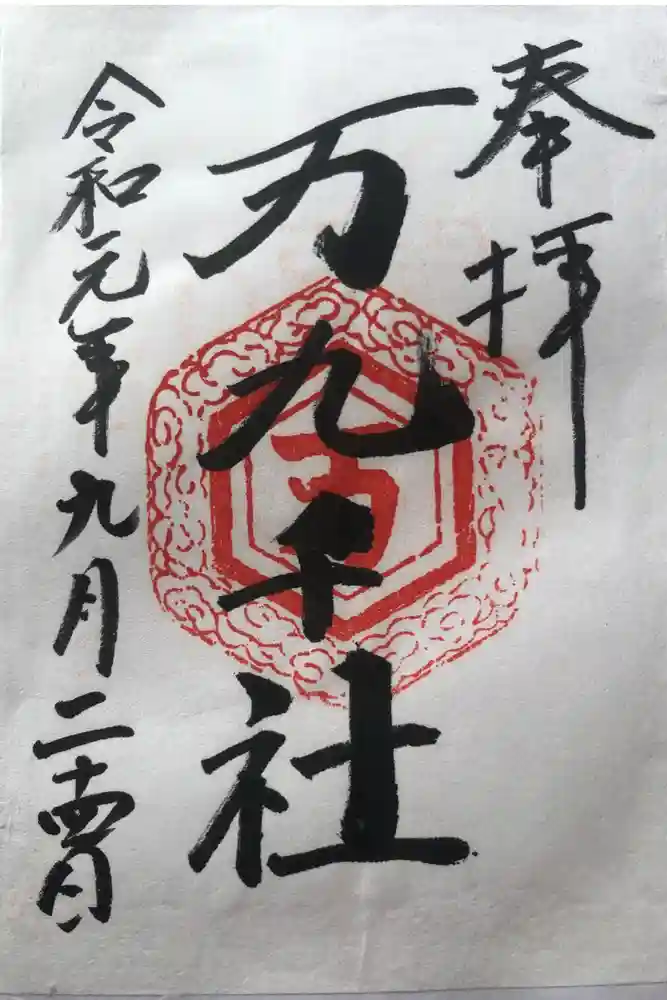 奉拝
万九千社
令和元年九月二十四日